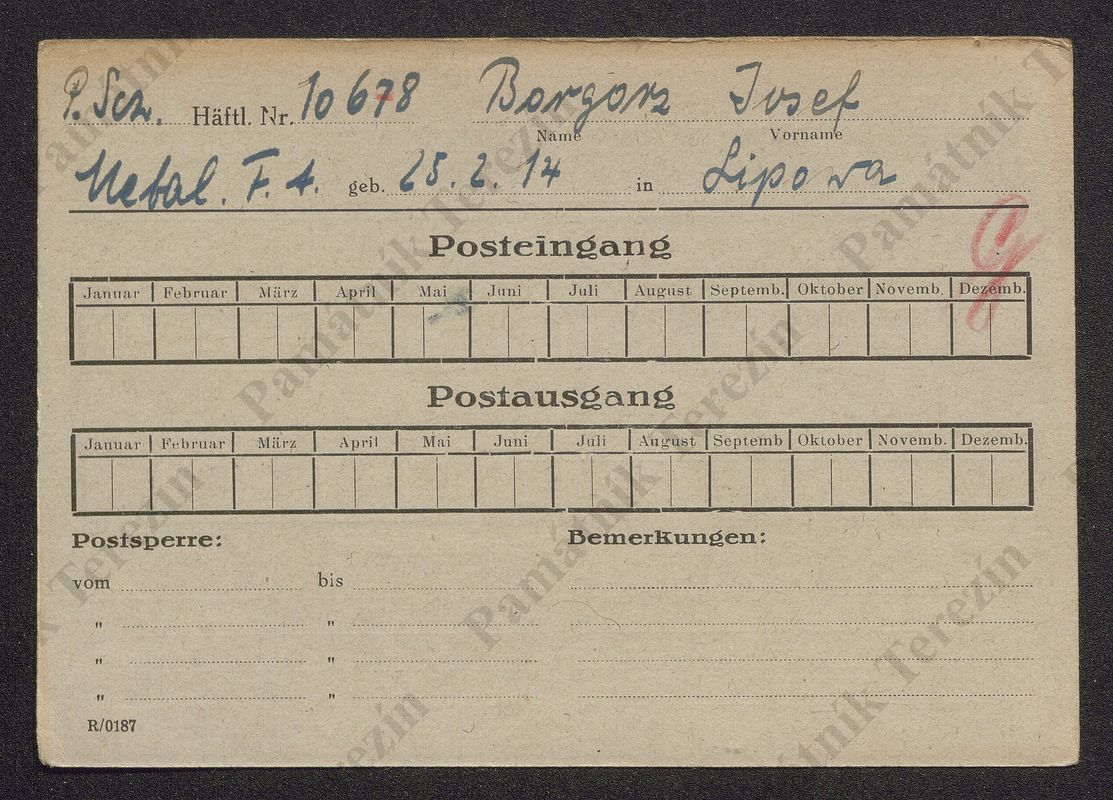 P. Sch. Häftl. Nr. 10678 Borgorz Josef
Name Vorname
Metal. F. A. geb. 25. 2. 14 in Lipowa
Posteingang
Januar Februar März April Mai Juni Juli August Septemb. Oktober Novemb. Dezemb.
Postausgang
Januar Februar März April Mai Juni Juli August Septemb Oktober Novemb. Dezemb.
Postsperre: Bemerkungen:
vom bis
" "
" "
" "
R/0187
Památník Terezín